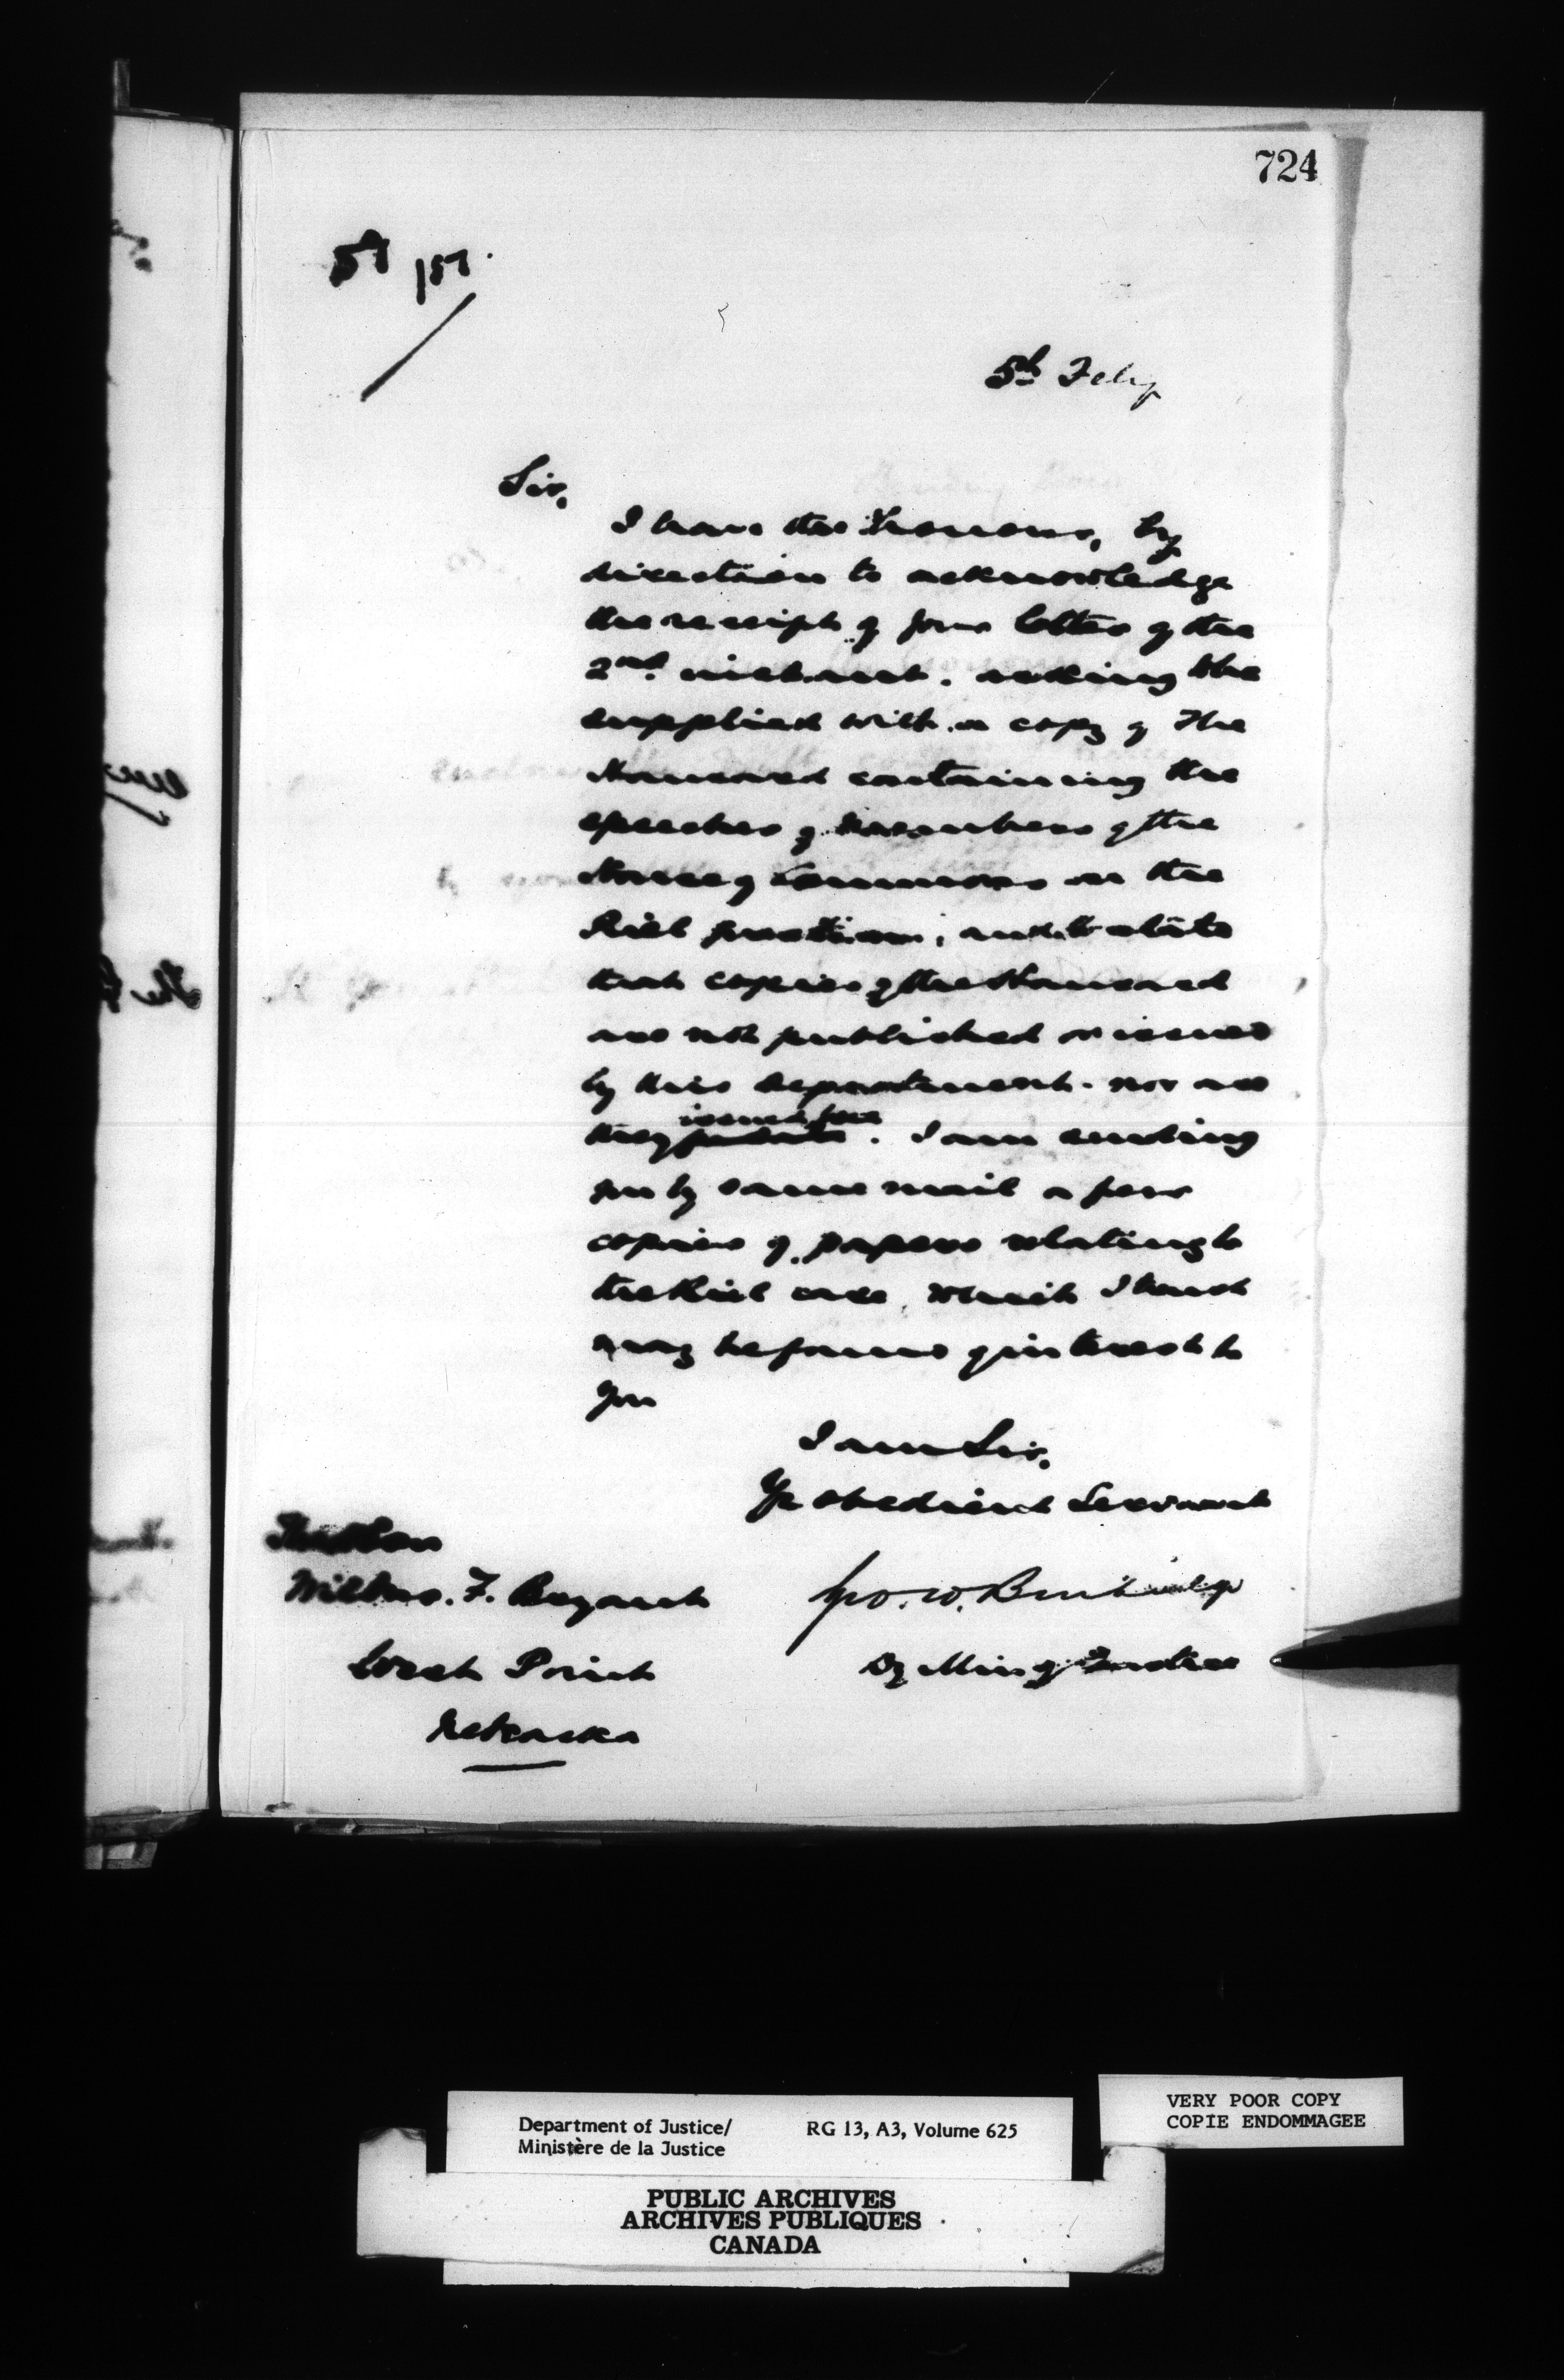 724
57 157.
5th Feby
Sir,
I have the honour, by
direction to acknowledge
the receipt of your letter of the
2nd instant. asking to be
supplied with a copy of the
Hansard containing the
speeches of members of the
House of Commons on the
Riel question, and to state
that copies of the Hansard
are not published or issued
by this Department. nor are
they issued free. I am sending
you by same mail a few
copies of papers relating to
the Riel case, which I trust
may be found of interest to
you
I am Sir,
Yr obedient Servant
Geo. W. Burbidge
Dy Min of Justice
F. Bryant
West Point
Nebraska
Department of Justice/
Ministère de la Justice
RG 13, A3, Volume 625
VERY POOR COPY
COPIE ENDOMMAGEE
PUBLIC ARCHIVES
ARCHIVES PUBLIQUES
CANADA